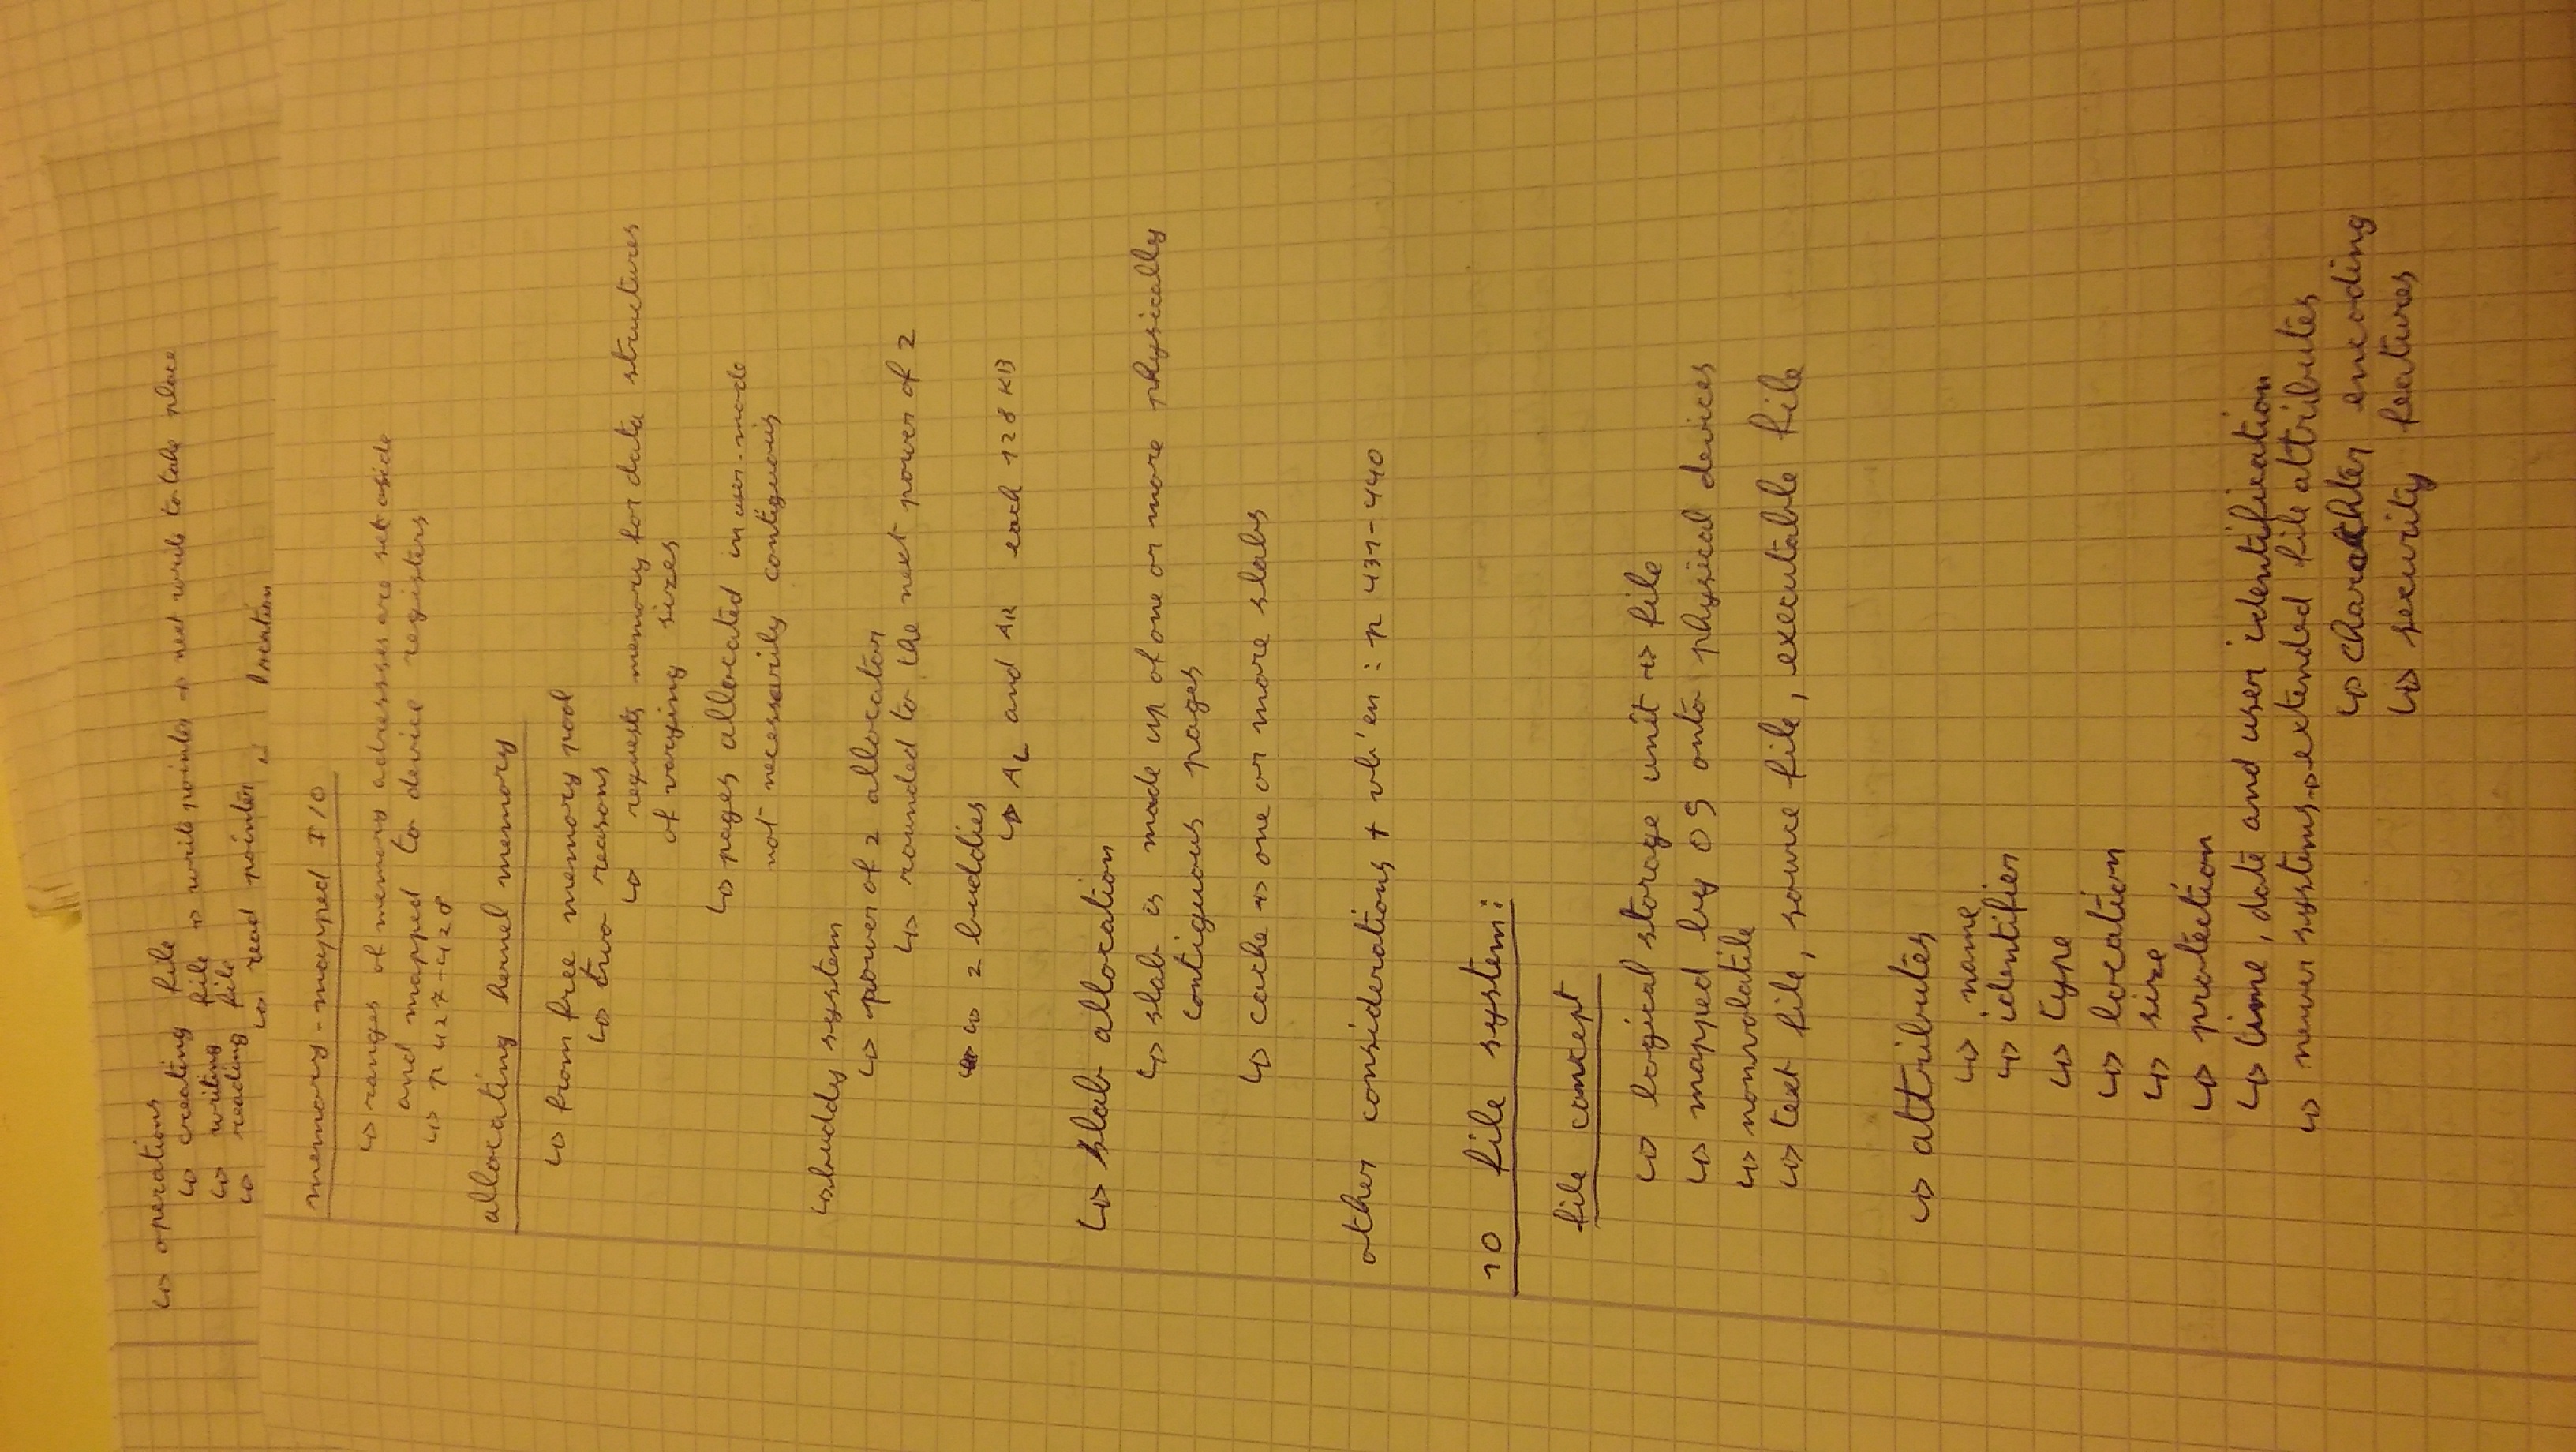 ↳ operations
↳ creating file
↳ writing file → write pointer → next write to take place
↳ reading file
↳ read pointer location
memory-mapped I/O
↳ ranges of memory adressses are set aside
and mapped to device registers
↳ p 427-428
allocating kernel memory
↳ from free memory pool
↳ two reasons
↳ requests memory for data structures
of varying sizes
↳ pages allocated in user-mode
not necessarily contiguous
↳ buddy system
↳ power of 2 allocator
↳ rounded to the next power of 2
↳ 2 buddies
↳ AL and AR each 128 KB
↳ slab allocation
↳ slab is made up of one or more physically
contiguous pages
↳ cache → one or more slabs
other considerations + vb'en : p 431-440
10 file system:
file concept
↳ logical storage unit → file
↳ mapped by OS onto physical devices
↳ nonvolatile
↳ text file, source file, executable file
↳ attributes
↳ name
↳ identifier
↳ type
↳ location
↳ size
↳ protection
↳ time, date and user identification
↳ newer systems → extended file attributes
↳ charachter encoding
↳ security features